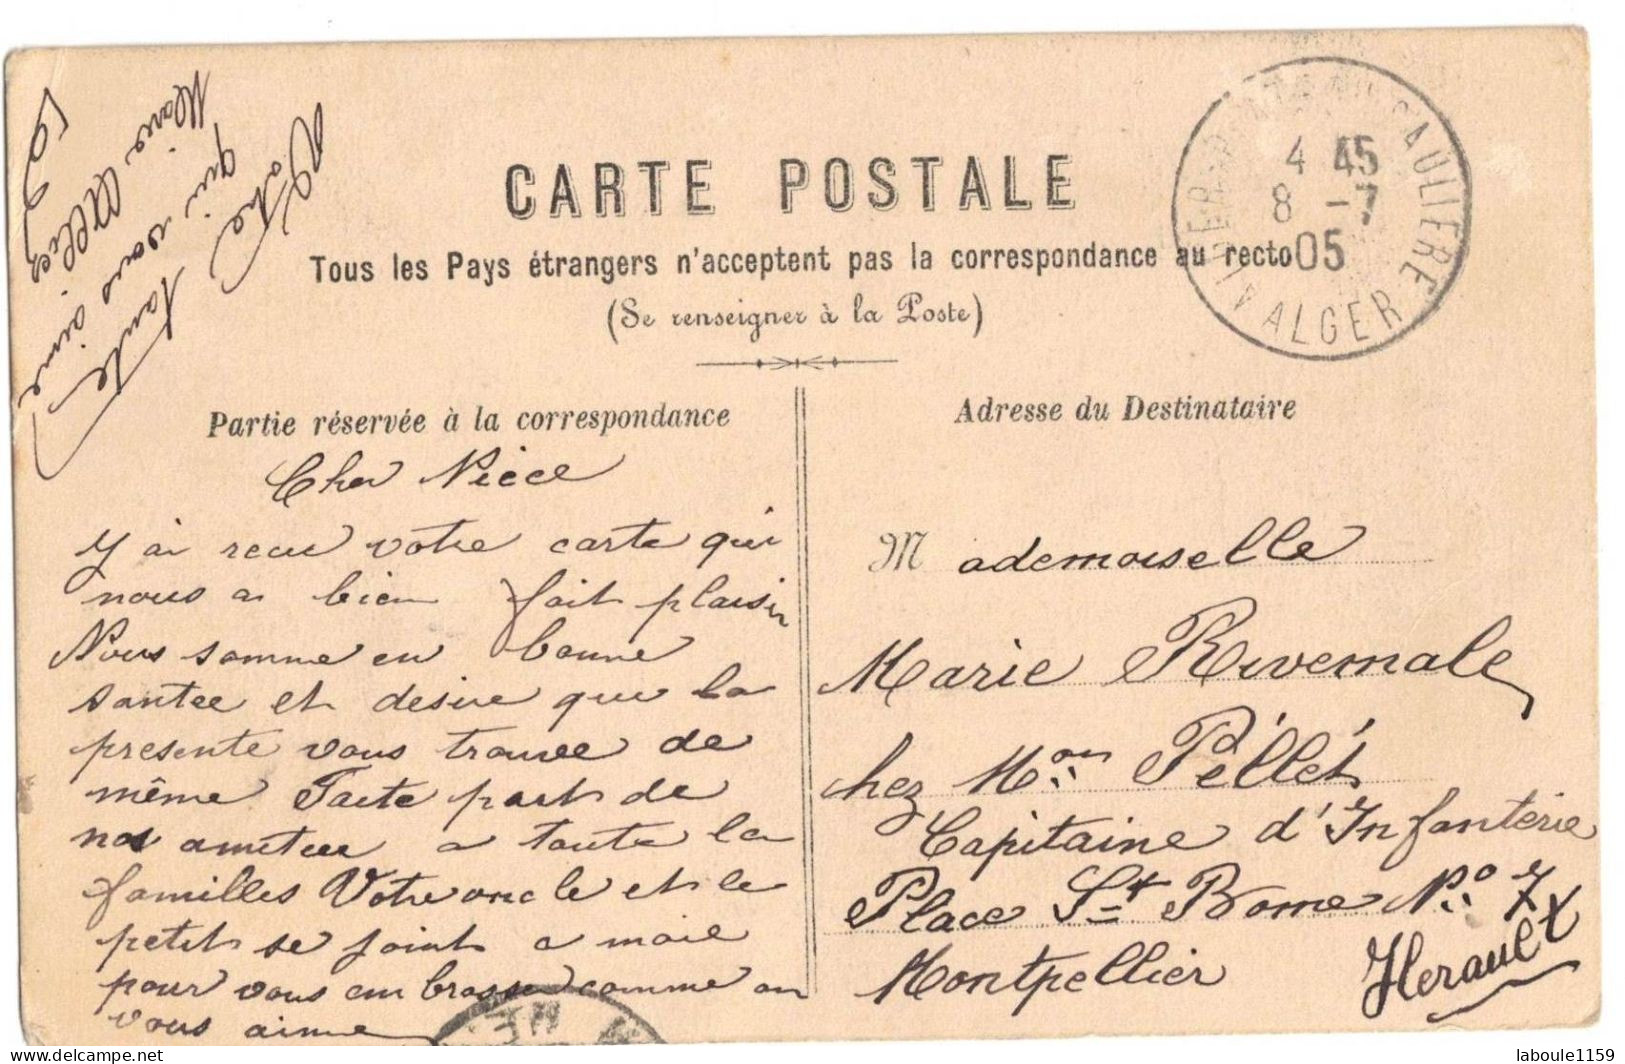 CARTE POSTALE
Tous les Pays étrangers n'acceptent pas la correspondance au recto
(Se renseigner à la Poste)
Partie réservée à la correspondance
Cher Niece
J'ai recue votre carte qui
nous a bien fait plaisir
Nous somme en bonne
santee et desire que la
presente vous trouve de
même Faite part de
nos a toute la
familles Votre oncle et le
petit se joint a moie
pour vous embrasse comme on
vous aime
Votre tante
qui vous aime
Marie
Adresse du Destinataire
Mademoiselle
Marie Rivemale
chez Mon Péllét
Capitaine d'Infanterie
Place St Rome No 7
Montpellier
Herault
4 45
8 -7
05
ALGER
delcampe.net
laboule1159